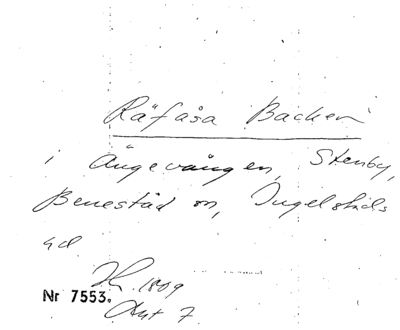 Räfåsa Backen
i Ängevången, Stenby,
Benestad sn, Ingelstads
hd
Nr 7553.
1809
Akt 7